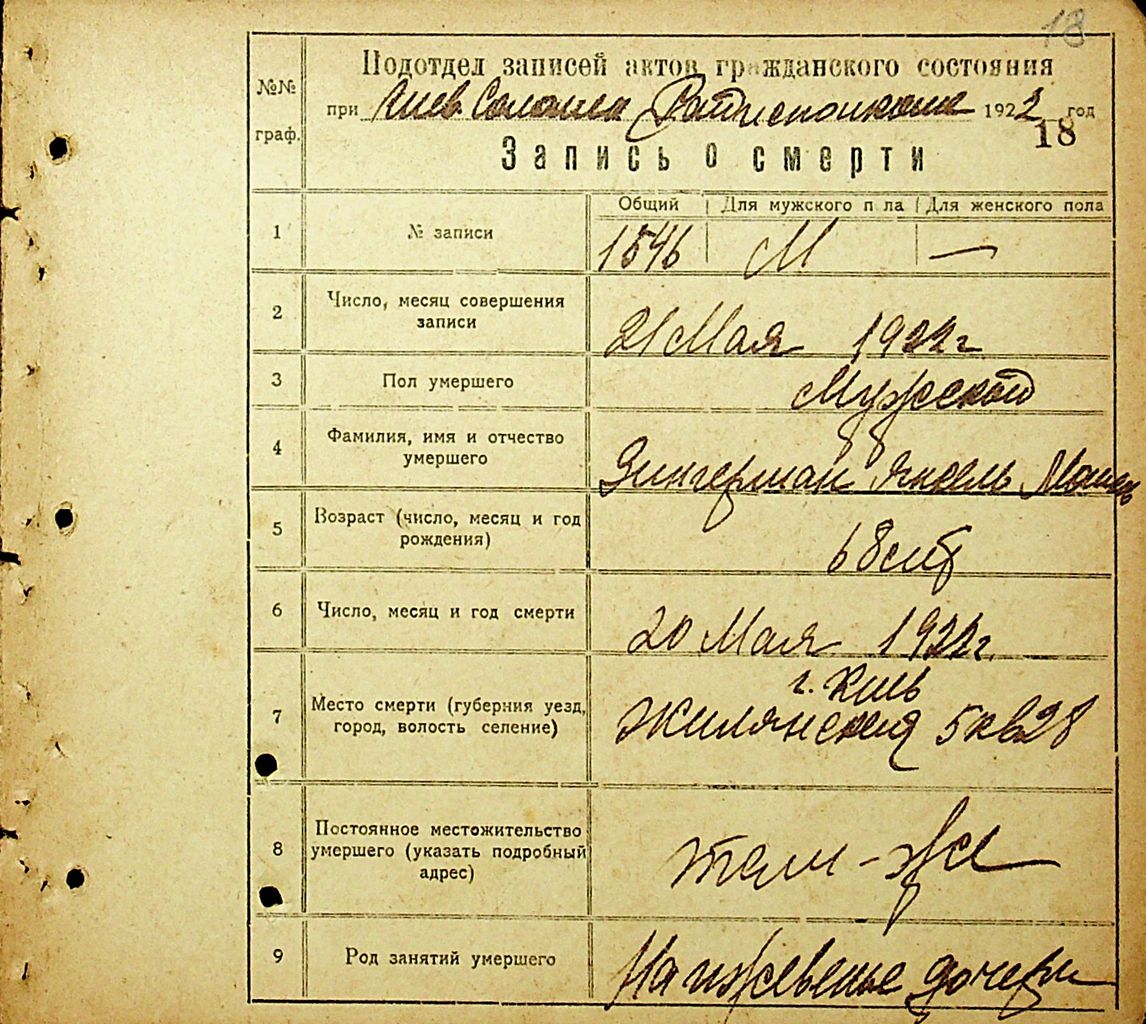 18
Подотдел записей актов гражданского состояния
№№ граф.
при Киев. 1922 год
18
Запись о смерти
Общий Для мужского пола Для женского пола
1 № записи 1546 М —
2 Число, месяц совершения записи 21 Мая 1922 г.
3 Пол умершего Мужской
4 Фамилия, имя и отчество умершего Зингерман Янкель Мошек
5 Возраст (число, месяц и год рождения) 68 лет
6 Число, месяц и год смерти 20 Мая 1922 г.
7 Место смерти (губерния уезд, город, волость селение) г. Киев
Жилянская 5 кв 28
8 Постоянное местожительство умершего (указать подробный адрес) там-же
9 Род занятий умершего На иждевенье дочери